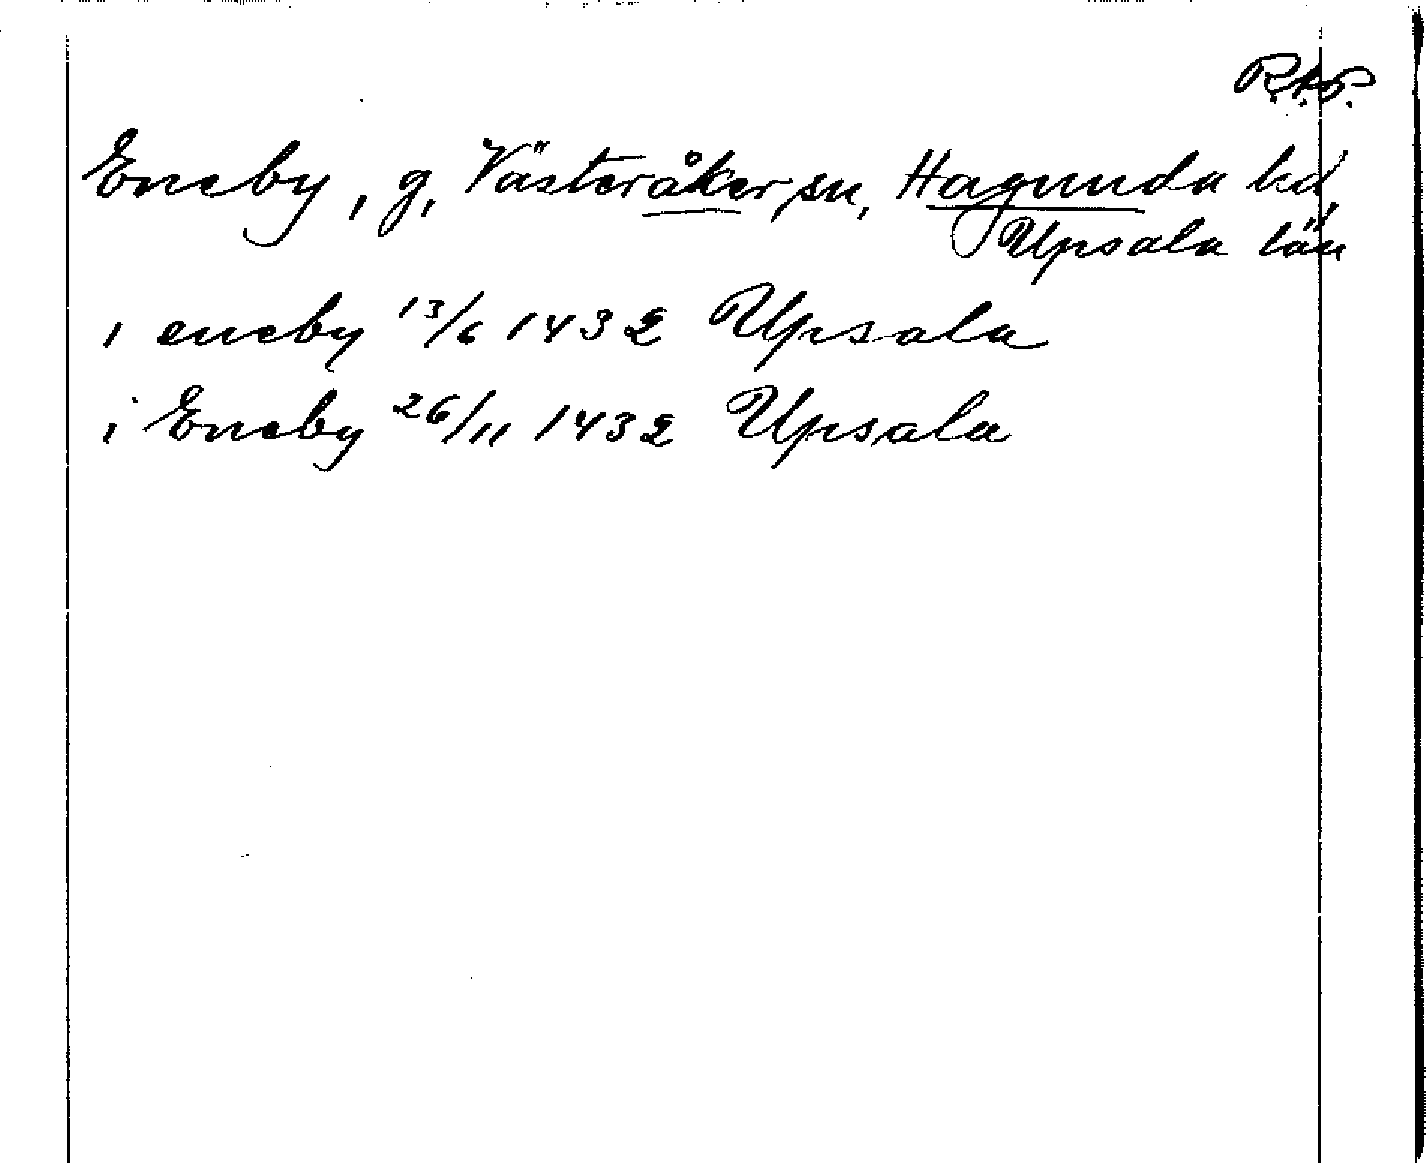 R.A.P.
Eneby, g, Västeråker sn, Hagunda hd,
Upsala län
i eneby 13/6 1432 Upsala
i Eneby 26/11 1432 Upsala